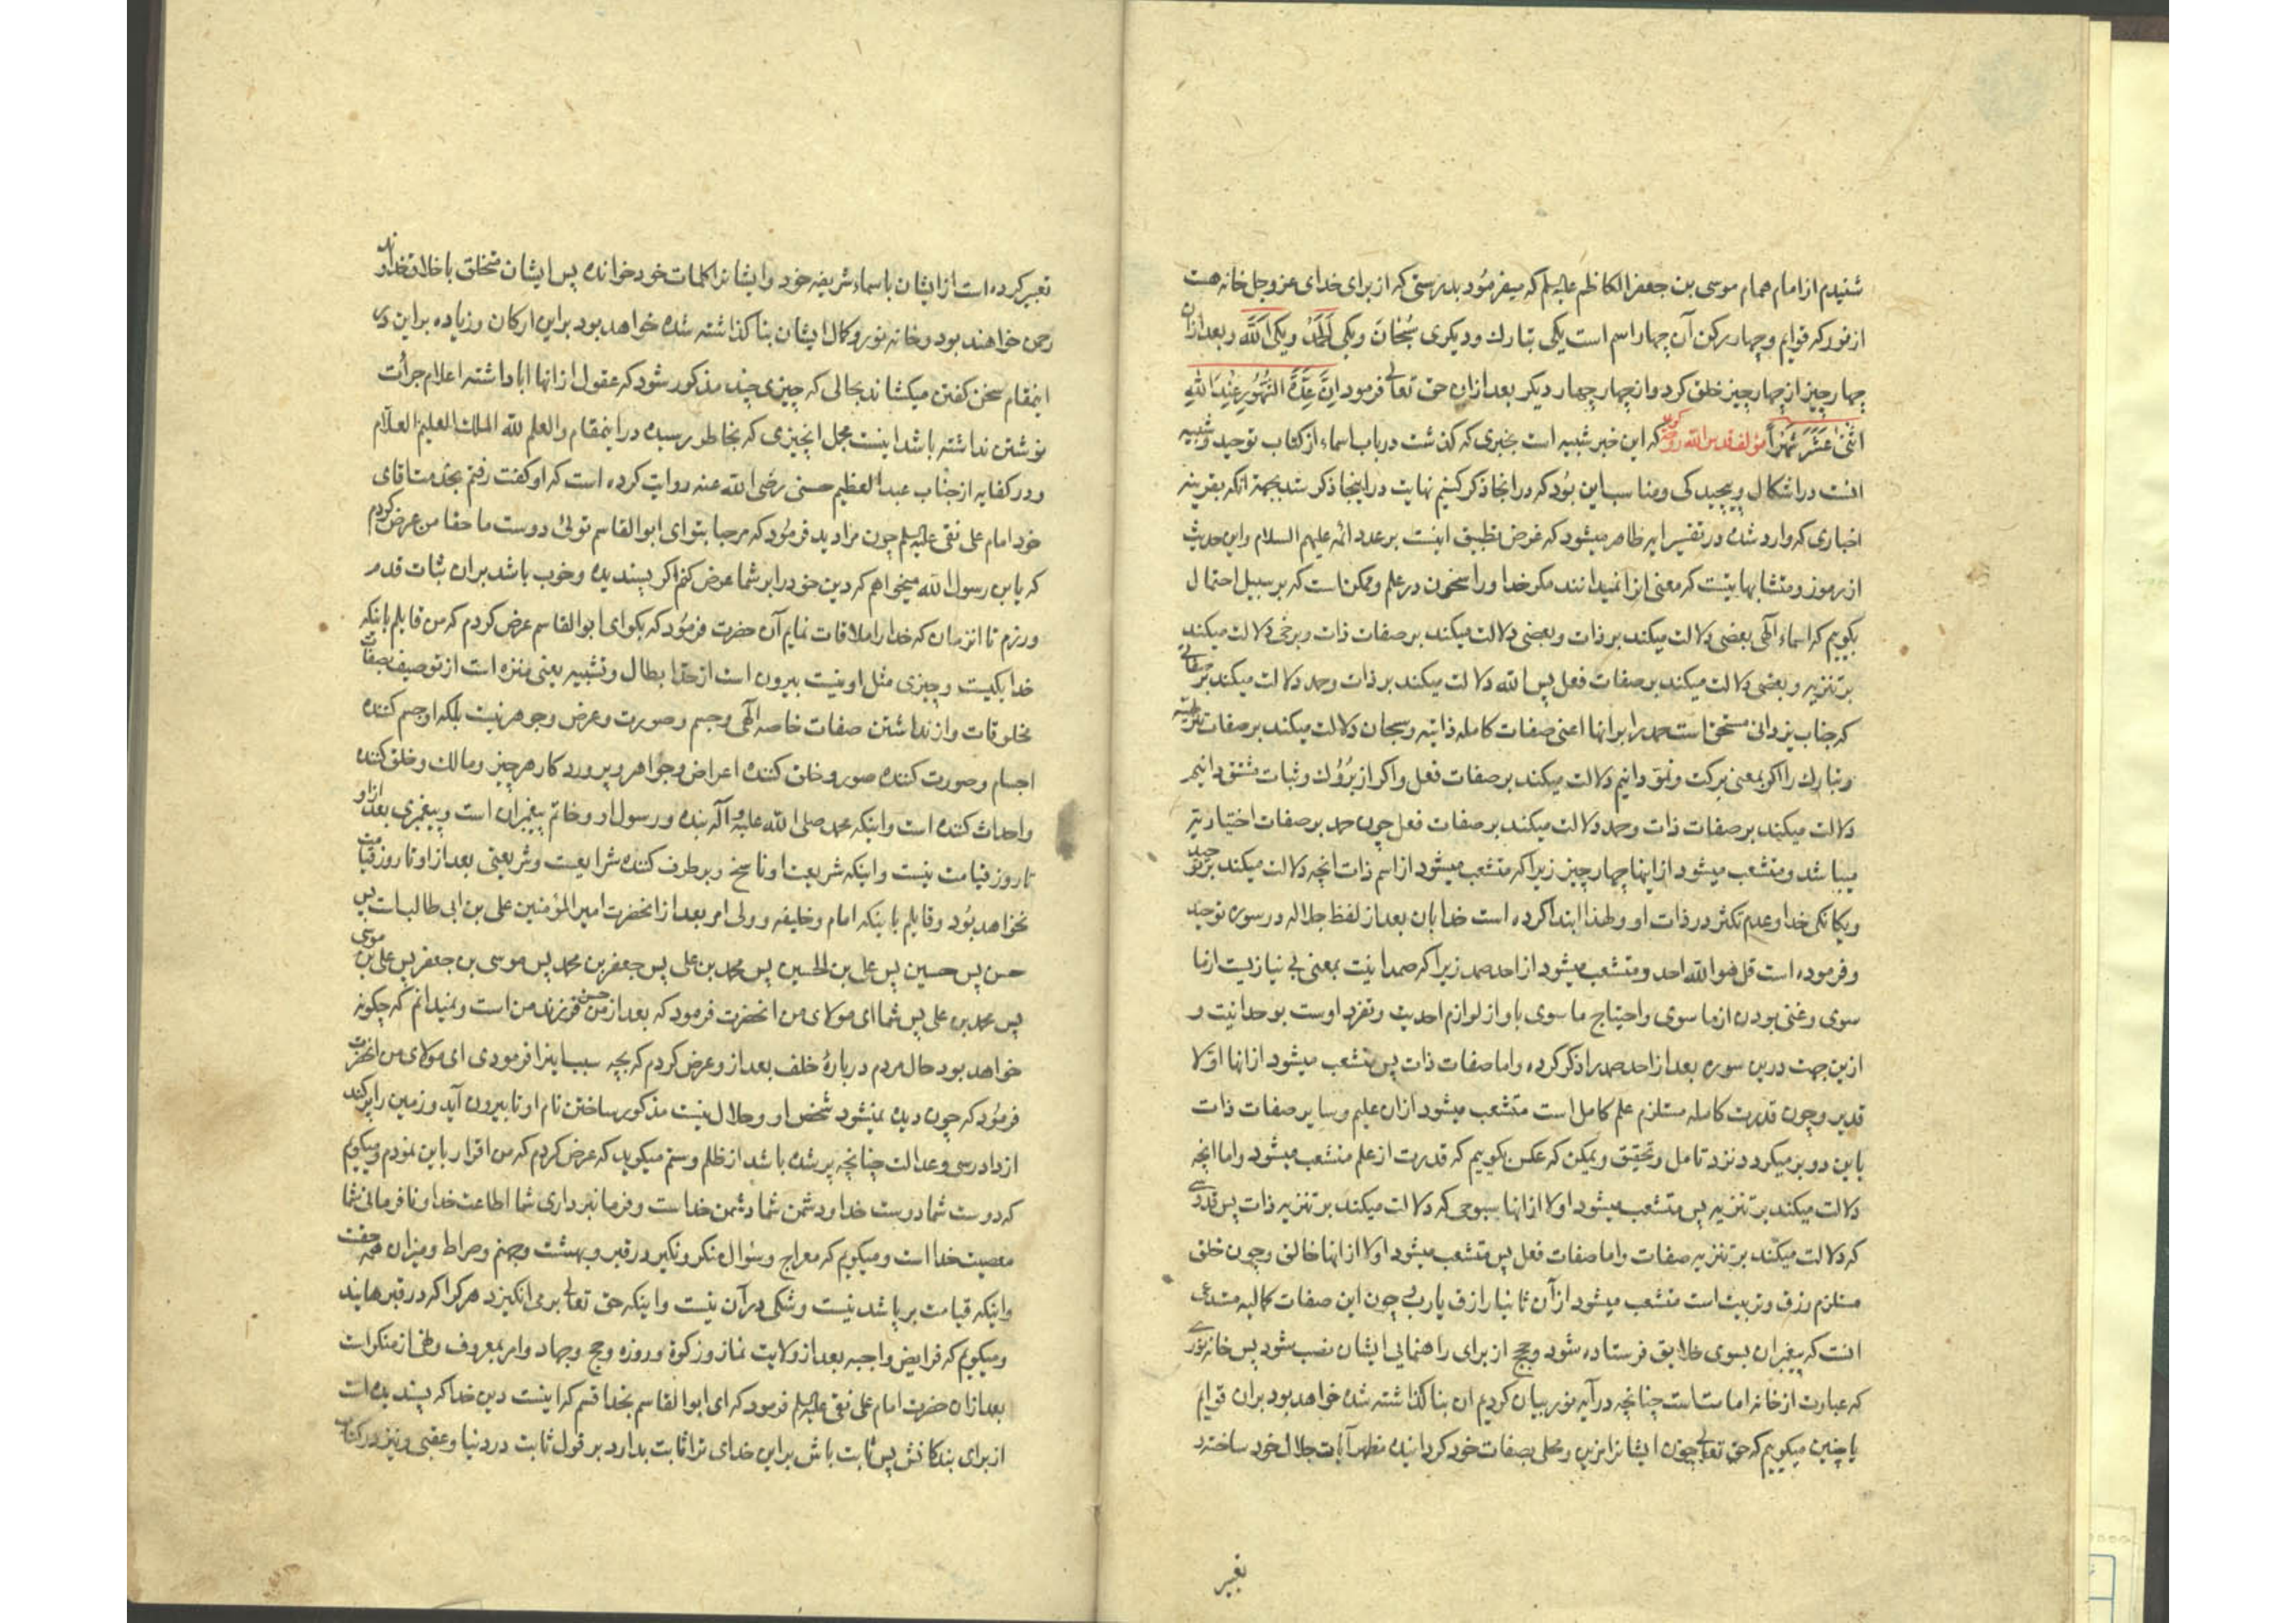 شنیدم از امام همام موسی بن جعفر الکاظم علیه السلم که میفرمود بدرستی که از برای خدای عز و جل خانه هست
از نور که قوایم و چهار رکن آن چهار اسم است یکی تبارک و دیکری سُبْحَانَ و یکی اَلْحَمْدُ و یکی اَللّٰه و بعد ازان
چهار چیز از چهار چیز خلق کرد و از چهار چهار دیکر بعد ازان حق تعالی فرمود اِنَّ عِدَّةَ الشُّهُورِ عِنْدَ اللّٰهِ
اثْنیٰ عَشَرَ شَهْراً مؤلف قدس الله روحه کوید که این خبر شبیه است بخبری که کذشت در باب اسماء از کتاب توحید و شبیه
انست در اشکال و پیچیدکی و مناسب این بود که در انجا ذکر کنیم نهایت در اینجا ذکر شد بجهة انکه بقرینه
اخباری که وارد شده در تفسیر ایه ظاهر میشود که غرض تطبیق اینست بر عدد ائمه علیهم السلام و این حدیث
از رموز و متشابهاتیست که معنی انرا نمیدانند مکر خدا و راسخون در علم و ممکن است که بر سبیل احتمال
بکوییم که اسماء الٓهی بعضی دلالت میکند بر ذات و بعضی دلالت میکند بر صفات ذات و برخی دلالت میکند
بر تنزیه و بعضی دلالت میکند بر صفات فعل پس الله دلالت میکند بر ذات و حمد دلالت میکند بر صفاتی
که جناب یزدانی مستحق است حمد را برانها اعنی صفات کامله ذاتیه و سبحان دلالت میکند بر صفات تنزیهیه
و تبارک را اکر بمعنی برکت و نمو دانیم دلالت میکند بر صفات فعل و اکر از بُرُوک و ثبات مشتق دانیم
دلالت میکند بر صفات ذات و حمد دلالت میکند بر صفات فعل چون حمد بر صفات اختیاریه
میباشد و متشعب میشود از اینها چهار چیز زیرا که متشعب میشود از اسم ذات انچه دلالت میکند بر توحید
و یکانکی خدا و عدم تکثر در ذات او و لهذا ابتدا کرده است خدا بان بعد از لفظ جلاله در سوره توحید
و فرموده است قل هو الله احد و متشعب میشود از احد صمد زیرا که صمدانیت بمعنی بی نیازیست از ما
سوی و غنی بودن از ما سوی و احتیاج ما سوی باو از لوازم احدیت و تفرد اوست بوحدانیت و
ازین جهت درین سوره بعد از احد صمد را ذکر کرده و اما صفات ذات پس متشعب میشود ازانها اوّلا
قدیر و چون قدرت کامله مستلزم علم کامل است متشعب میشود ازان علیم و سایر صفات ذات
باین دو بر میکردد نزد تامل و تحقیق و یمکن که عکس بکوییم که قدرت از علم متشعب میشود و اما انچه
دلالت میکند بر تنزیه پس متشعب میشود اولا ازانها سبوحی که دلالت میکند بر تنزیه ذات پس قدوسی
که دلالت میکند بر تنزیه صفات و اما صفات فعل پس متشعب میشود اولا ازانها خالق و چون خلق
مستلزم رزق و تربیت است متشعب میشود از آن ثانیا رازق یا رب چون این صفات کمالیه مستدعی
انست که پیغمبران بسوی خلایق فرستاده شود و حجج از برای راهنمایی ایشان نصب شود پس خانه نوری
که عبارت از خانه امامتست چنانچه در آیه نور بیان کردیم ان بنا کذاشته شده خواهد بود بران قوایم
یا چنین میکوییم که حق تعالی چون ایشانرا مزین و محلی بصفات خود کردانیده مظهر آیات جلال خود ساخته و
تعبیر
تعبیر کرده است از ایشان باسماء شریفه خود و ایشانرا کلمات خود خوانده پس ایشان متخلق باخلاق خداوند
رحمن خواهند بود و خانه نور و کمال ایشان بنا کذاشته شده خواهد بود براین ارکان و زیاده براین در
اینمقام سخن کفتن میکشاند بجائی که چیزی چند مذکور شود که عقول ازانها ابا داشته اعلام جرأت
نوشتن نداشته باشد اینست مجمل انچیزی که بخاطر رسیده در اینمقام و العلم لله الملک العلیم العلّام
و در کفایه از جناب عبد العظیم حسنی رضی الله عنه روایت کرده است که او کفت رفتم بخدمت اقای
خود امام علی نقی علیه السلم چون مرا دید فرمود که مرحبا بتو ای ابو القاسم توئی دوست ما حقا من عرض کردم
که یابن رسول الله میخواهم که دین خود را بر شما عرض کنم اکر پسندیده و خوب باشد بران ثبات قدم
ورزم تا انزمان که خدا را ملاقات نمایم آن حضرت فرمود که بکو ای ابو القاسم عرض کردم که من قایلم باینکه
خدا یکیست و چیزی مثل او نیست بیرون است از حد ابطال و تشبیه یعنی منزه است از توصیف بصفات
مخلوقات و از نداشتن صفات خاصه الٓهی و جسم و صورت و عرض و جوهر نیست بلکه او جسم کننده
اجسام و صورت کننده صور و خلق کننده اعراض و جواهر و پروردکار هر چیز و مالک و خلق کننده
و احداث کننده است و اینکه محمد صلی الله علیه و آله بنده و رسول او و خاتم پیغمبران است و پیغمبری بعد از او
تا روز قیامت نیست و اینکه شریعت او ناسخ و برطرف کننده شرایعست و شریعتی بعد از او تا روز قیامت
نخواهد بود و قایلم باینکه امام و خلیفه و ولی امر بعد از انحضرت امیر المؤمنین علی بن ابی طالب است پس
حسن پس حسین پس علی بن الحسین پس محمد بن علی پس جعفر بن محمد پس موسی بن جعفر پس علی بن موسی
پس محمد بن علی پس شما ای مولای من انحضرت فرمود که بعد از من حسن فرزند من است و نمیدانم که چکونه
خواهد بود حال مردم در بارۀ خلف بعد از و عرض کردم که بچه سبب اینرا فرمودی ای مولای من انحضرت
فرمود که چون دیده نمیشود شخص او و حلال نیست مذکور ساختن نام او تا بیرون آید و زمین را پر کند
از دادرسی و عدالت چنانچه پر شده باشد از ظلم و ستم میکوید که عرض کردم که من اقرار باین نمودم و میکویم
که دوست شما دوست خدا و دشمن شما دشمن خداست و فرمانبرداری شما اطاعت خدا و نافرمانی شما
معصیت خدا است و میکویم که معراج و سؤال منکر و نکیر در قبر و بهشت و جهنم و صراط و میزان همه حقست
و اینکه قیامت بر پا شدنیست و شکی در آن نیست و اینکه حق تعالی بر می انکیزد هر کرا که در قبرهایند
و میکویم که فرایض واجبه بعد از ولایت نماز و زکوة و روزه و حج و جهاد و امر بمعروف و نهی از منکر است
بعد ازان حضرت امام علی نقی علیه السلم فرمود که ای ابو القاسم بخدا قسم که اینست دین خدا که پسندیده است
از برای بندکانش پس ثابت باش براین خدای ترا ثابت بدارد بر قول ثابت در دنیا و عقبی و نیز در کتاب